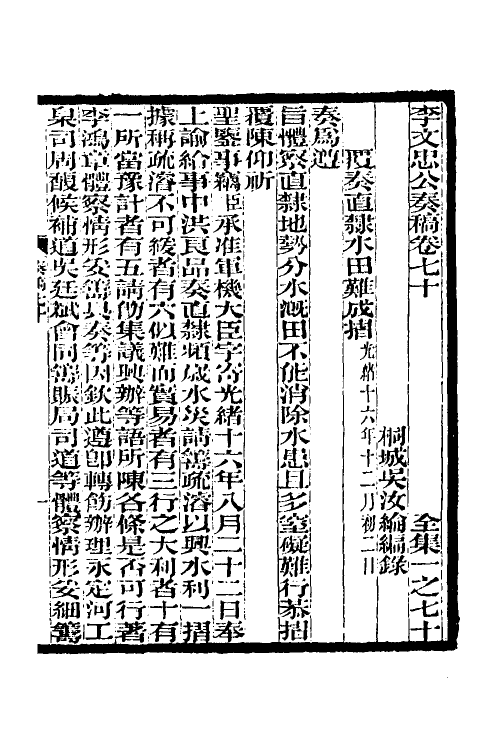 李文忠公奏稿卷七十　全集一之七十
桐城吳汝綸編錄
覆奏直隸水田難成摺 光緒十六年十二月初二日
奏爲遵
旨體察直隸地勢分水漑田不能消除水患且多窒礙難行恭摺
覆陳仰祈
聖鑒事竊臣承准軍機大臣字寄光緒十六年八月二十二日奉
上諭給事中洪良品奏直隸頻歲水災請籌疏濬以興水利一摺
據稱疏濬不可緩者有六似難而實易者有三行之大利者十有
一所當豫計者有五請飭集議興辦等語所陳各條是否可行著
李鴻章體察情形妥籌具奏等因欽此遵卽轉飭辦理永定河工
臬司周馥候補道吳廷斌會同籌賑局司道等體察情形妥細籌
奏稿七十
一